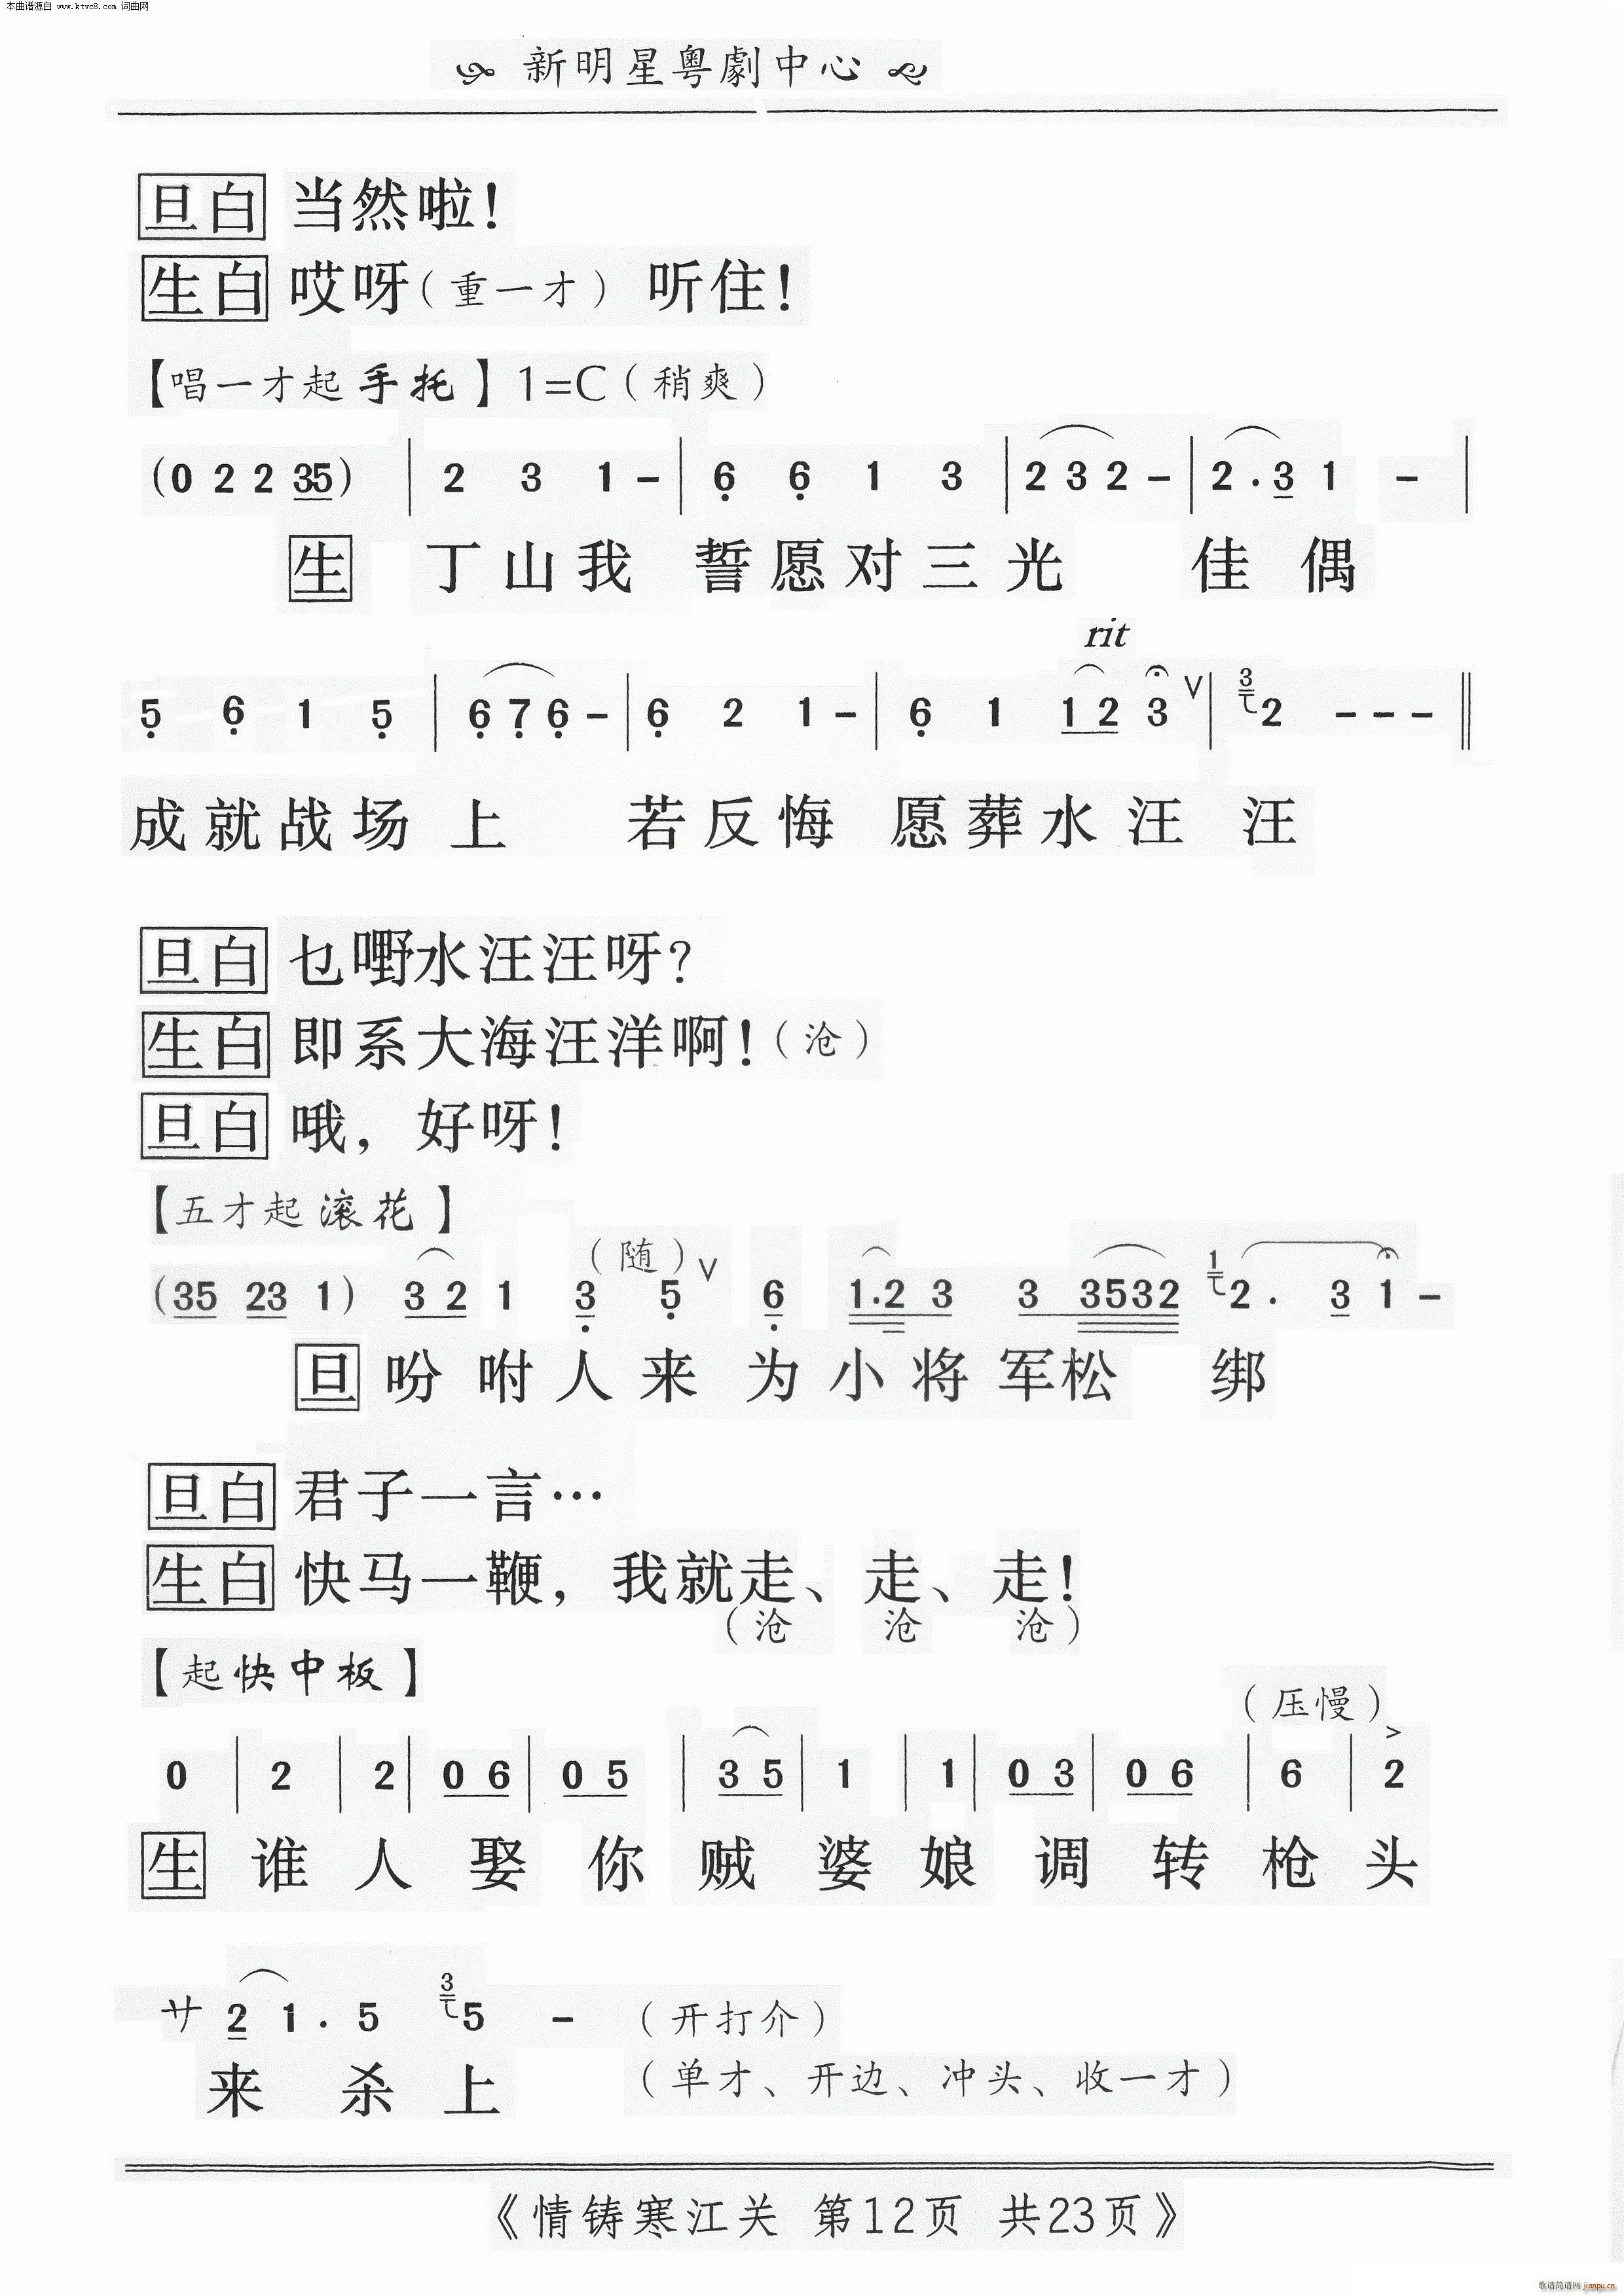 本曲谱源自 www.ktvc8.com 词曲网
新明星粤劇中心
旦白 当然啦!
生白 哎呀(重一才) 听住!
【唱一才起手托】1=C(稍爽)
(0 2 2 35) | 2 3 1 - | 6 6 1 3 | 2 3 2 - | 2 . 3 1 - |
生 丁山我 誓愿对三光 佳偶
rit
5 6 1 5 | 6 7 6 - | 6 2 1 - | 6 1 1 2 3 V | 3 2 - - - ||
成就战场上 若反悔 愿葬水汪 汪
旦白 乜嘢水汪汪呀?
生白 即系大海汪洋啊!(沧)
旦白 哦,好呀!
【五才起滚花】
(随)
(35 23 1) 3 2 1 3 5 V 6 1.2 3 3 3532 1 2 . 3 1 -
旦 吩咐人来 为小将军松 绑
旦白 君子一言…
生白 快马一鞭,我就走、走、走!
(沧 沧 沧)
【起快中板】
(压慢)
0 | 2 | 2 | 0 6 | 0 5 | 3 5 | 1 | 1 | 0 3 | 0 6 | 6 | > 2
生 谁人娶你贼婆娘调转枪头
サ 2 1 . 5 3 5 - (开打介)
来 杀 上 (单才、开边、冲头、收一才)
《情铸寒江关 第12页 共23页》
歌谱简谱网 jianpu.cn